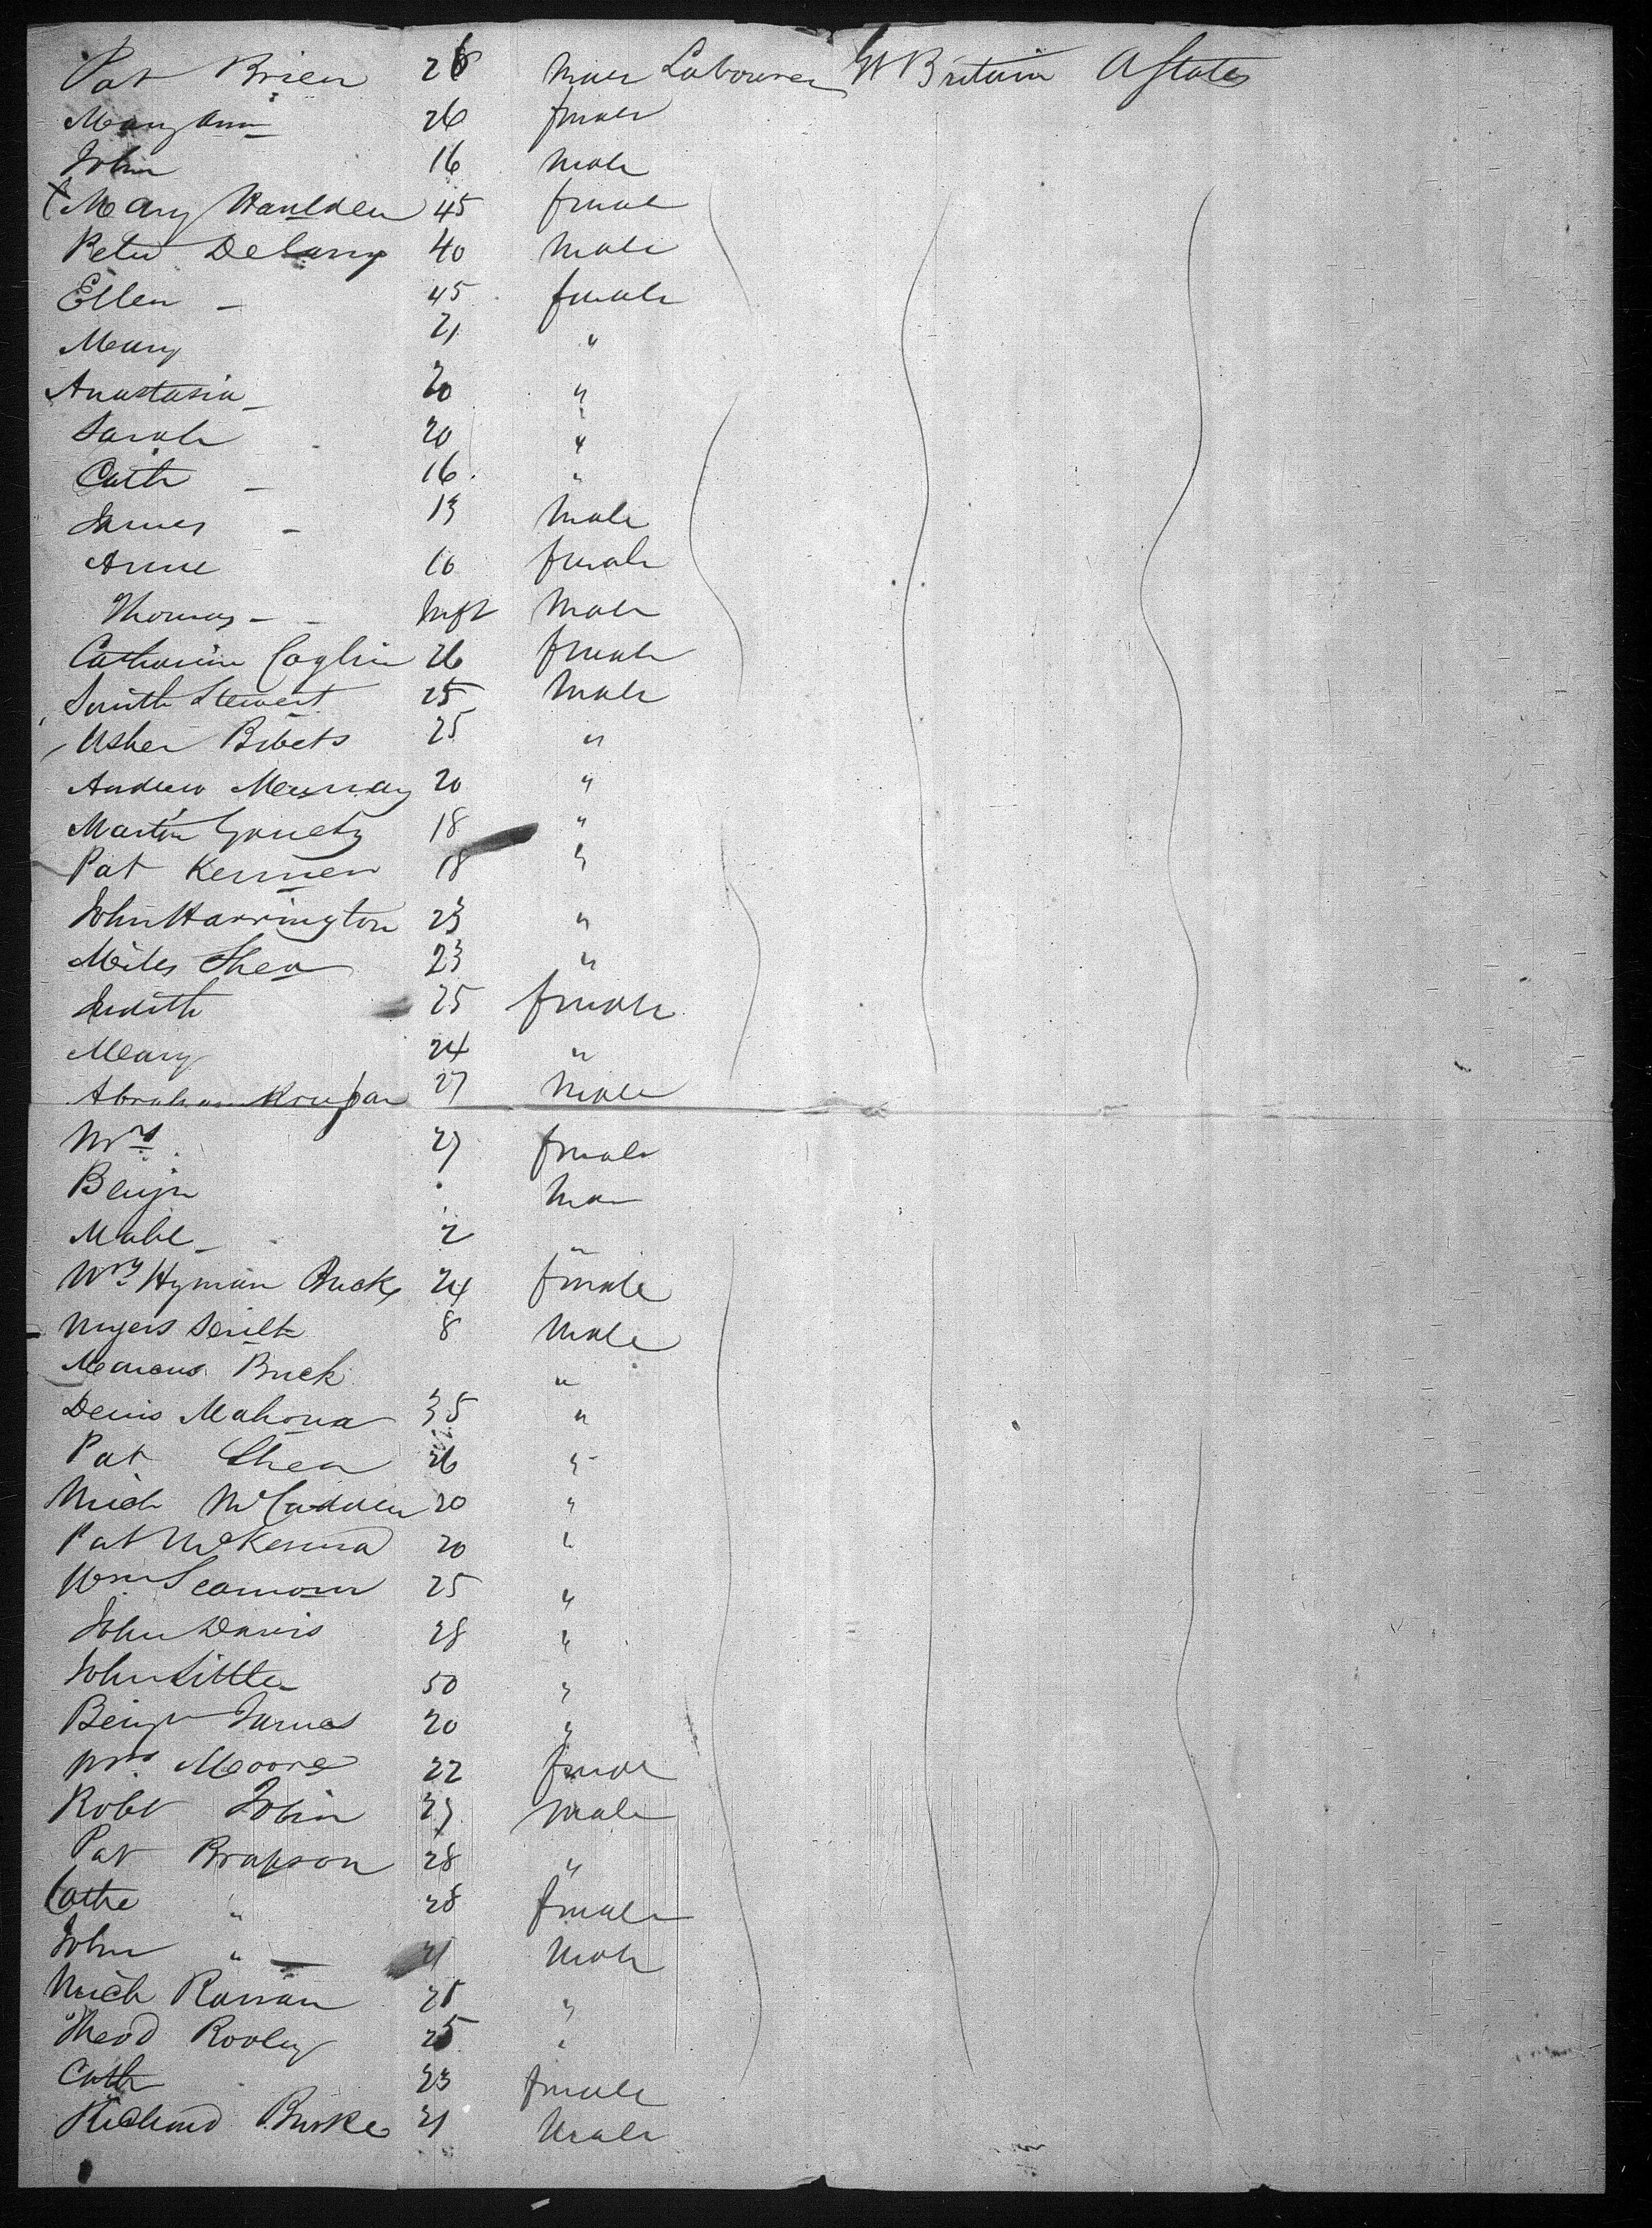 Pat Brien 26 Male Labourer Gt Britain U States
Mary Ann 26 female
John 16 Male
Mary 45 female
Peter Delany 40 Male
Ellen - 45 female
Mary 21 "
Anastasia - 20 "
Sarah 20 "
Cath - 16 "
James - 13 Male
Anne 10 female
Thomas - Inft Male
Catharine Coghlin 26 female
Smith Stewart 25 Male
Usher 25 "
Andrew Murray 20 "
Martin 18 "
Pat 18 "
John Harrington 23 "
Miles Shea 23 "
Judith 25 female
Mary 24 "
Abraham 27 Male
Mrs 27 female
Benjn
2 "
Mrs Hyman Buck 24 female
Myers 8 Male
Marcus Buck "
Denis Mahona 35 "
Pat Shea 26 "
Mich McCadden 20 "
Pat McKenna 20 "
Wm 25 "
John Davis 28 "
John Little 50 "
Benjn James 20 "
Mrs Moore 22 female
Robt John 27 Male
Pat 28 "
Cathe " 28 female
John " 21 Male
Mich 25 "
Theod Rooley 25 "
Cath 23 female
Richard Burke 21 Male